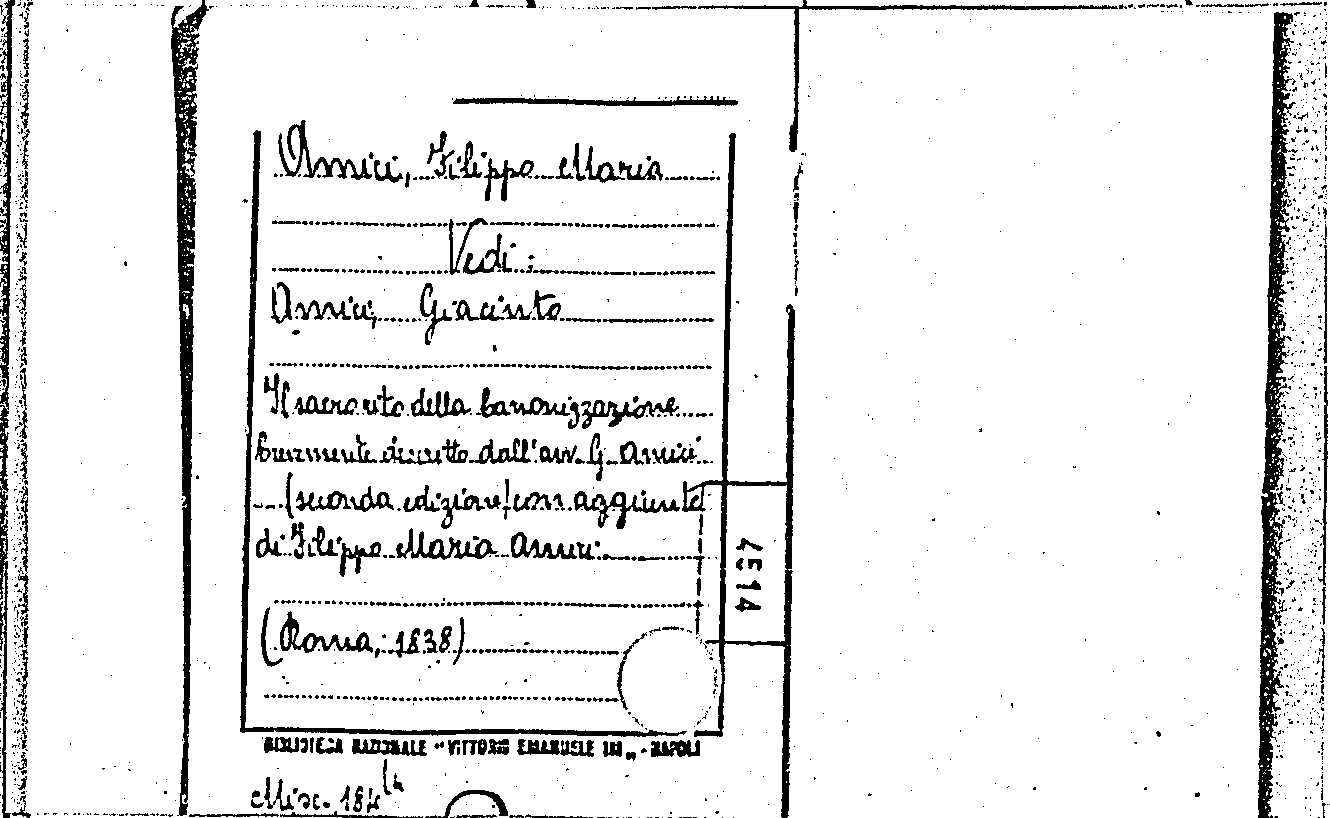 Amici, Filippo Maria
Vedi:
Amici, Giacinto
Il sacro rito della Canonizzazione
brevemente descritto dall'avv. G. Amici
(seconda edizione) con aggiunte
di Filippo Maria Amici.
(Roma, 1838)
4514
BIBLIOTECA NAZIONALE "VITTORIO EMANUELE III„ - NAPOLI
Misc.